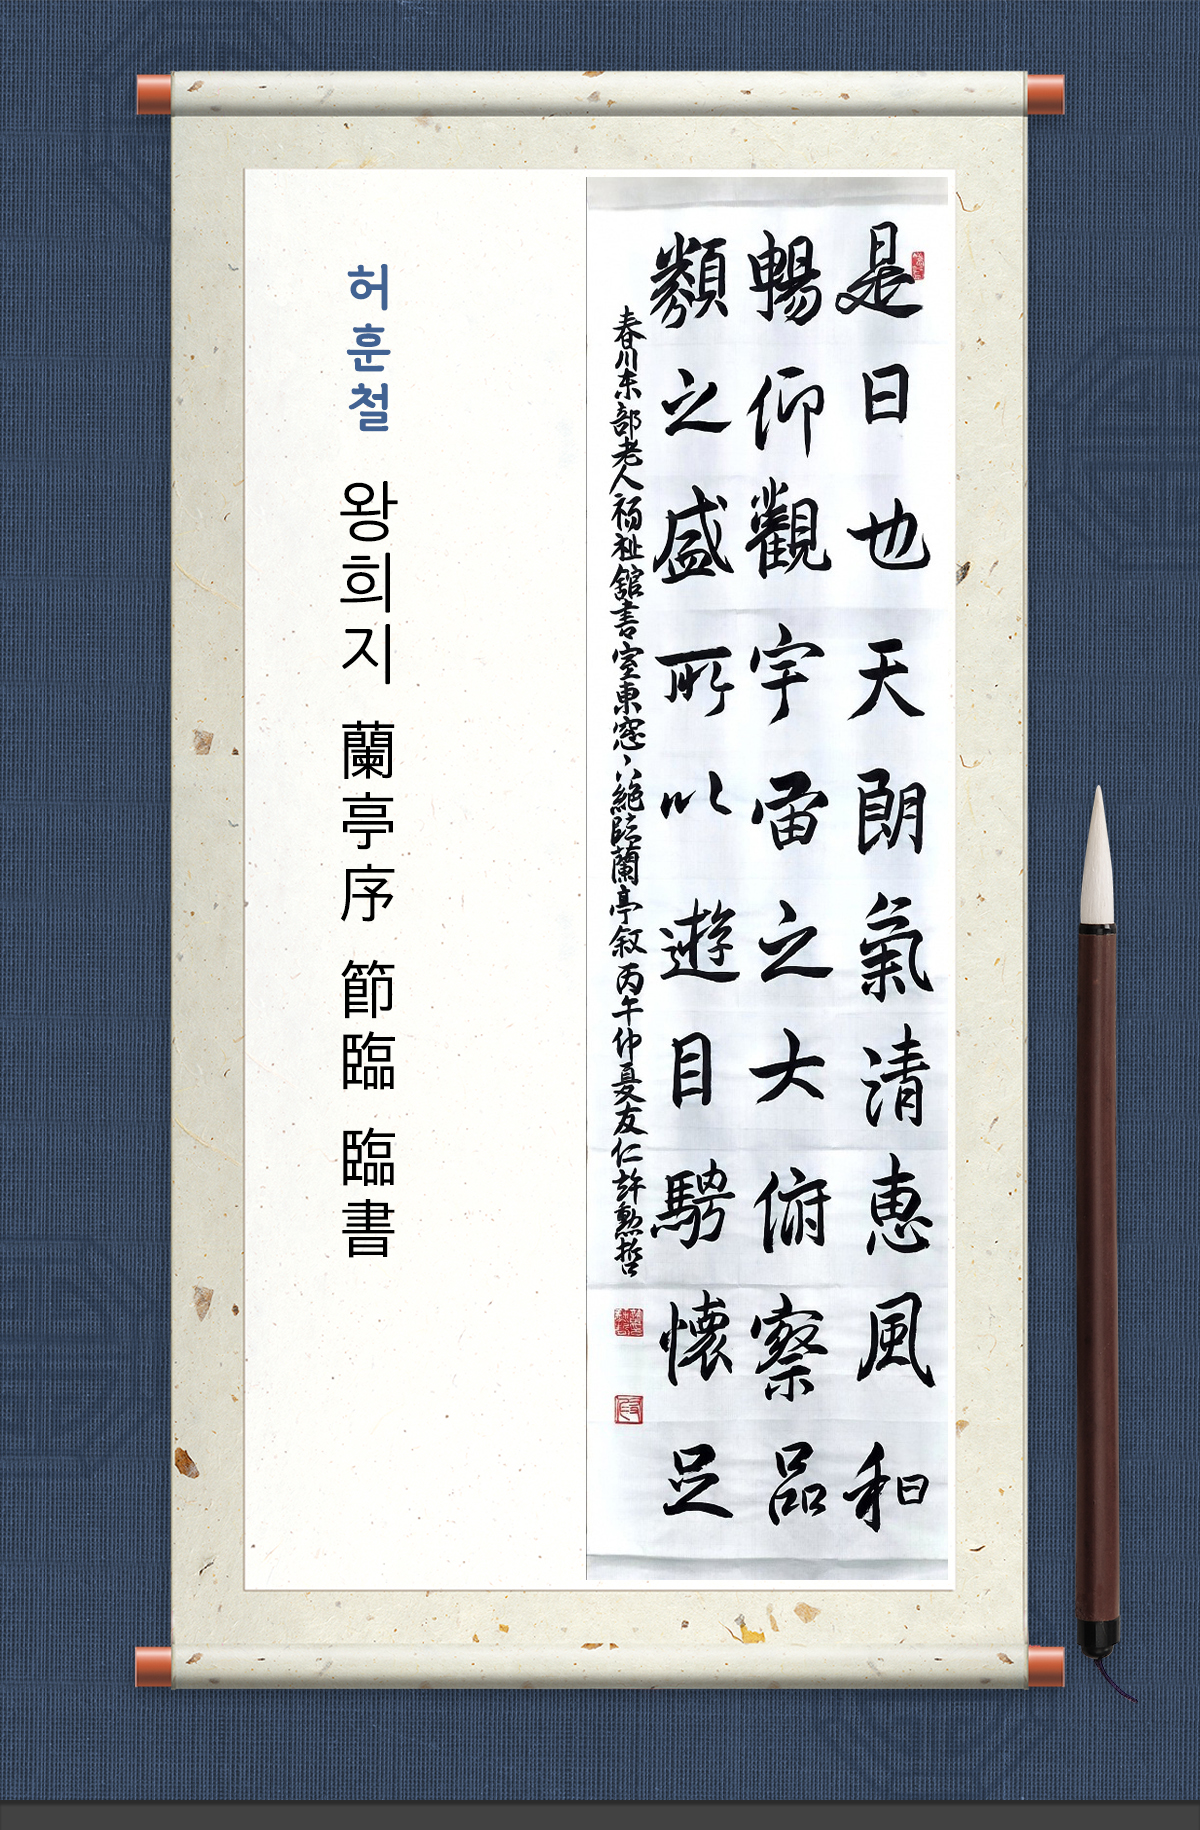 是日也天朗氣清恵風和
暢仰觀宇宙之大俯察品
類之盛所以遊目騁懷足
春川東部老人福祉舘書室東窓絶臨蘭亭叙丙午仲夏友仁許勳哲
허훈철 왕희지 蘭亭序 節臨 臨書